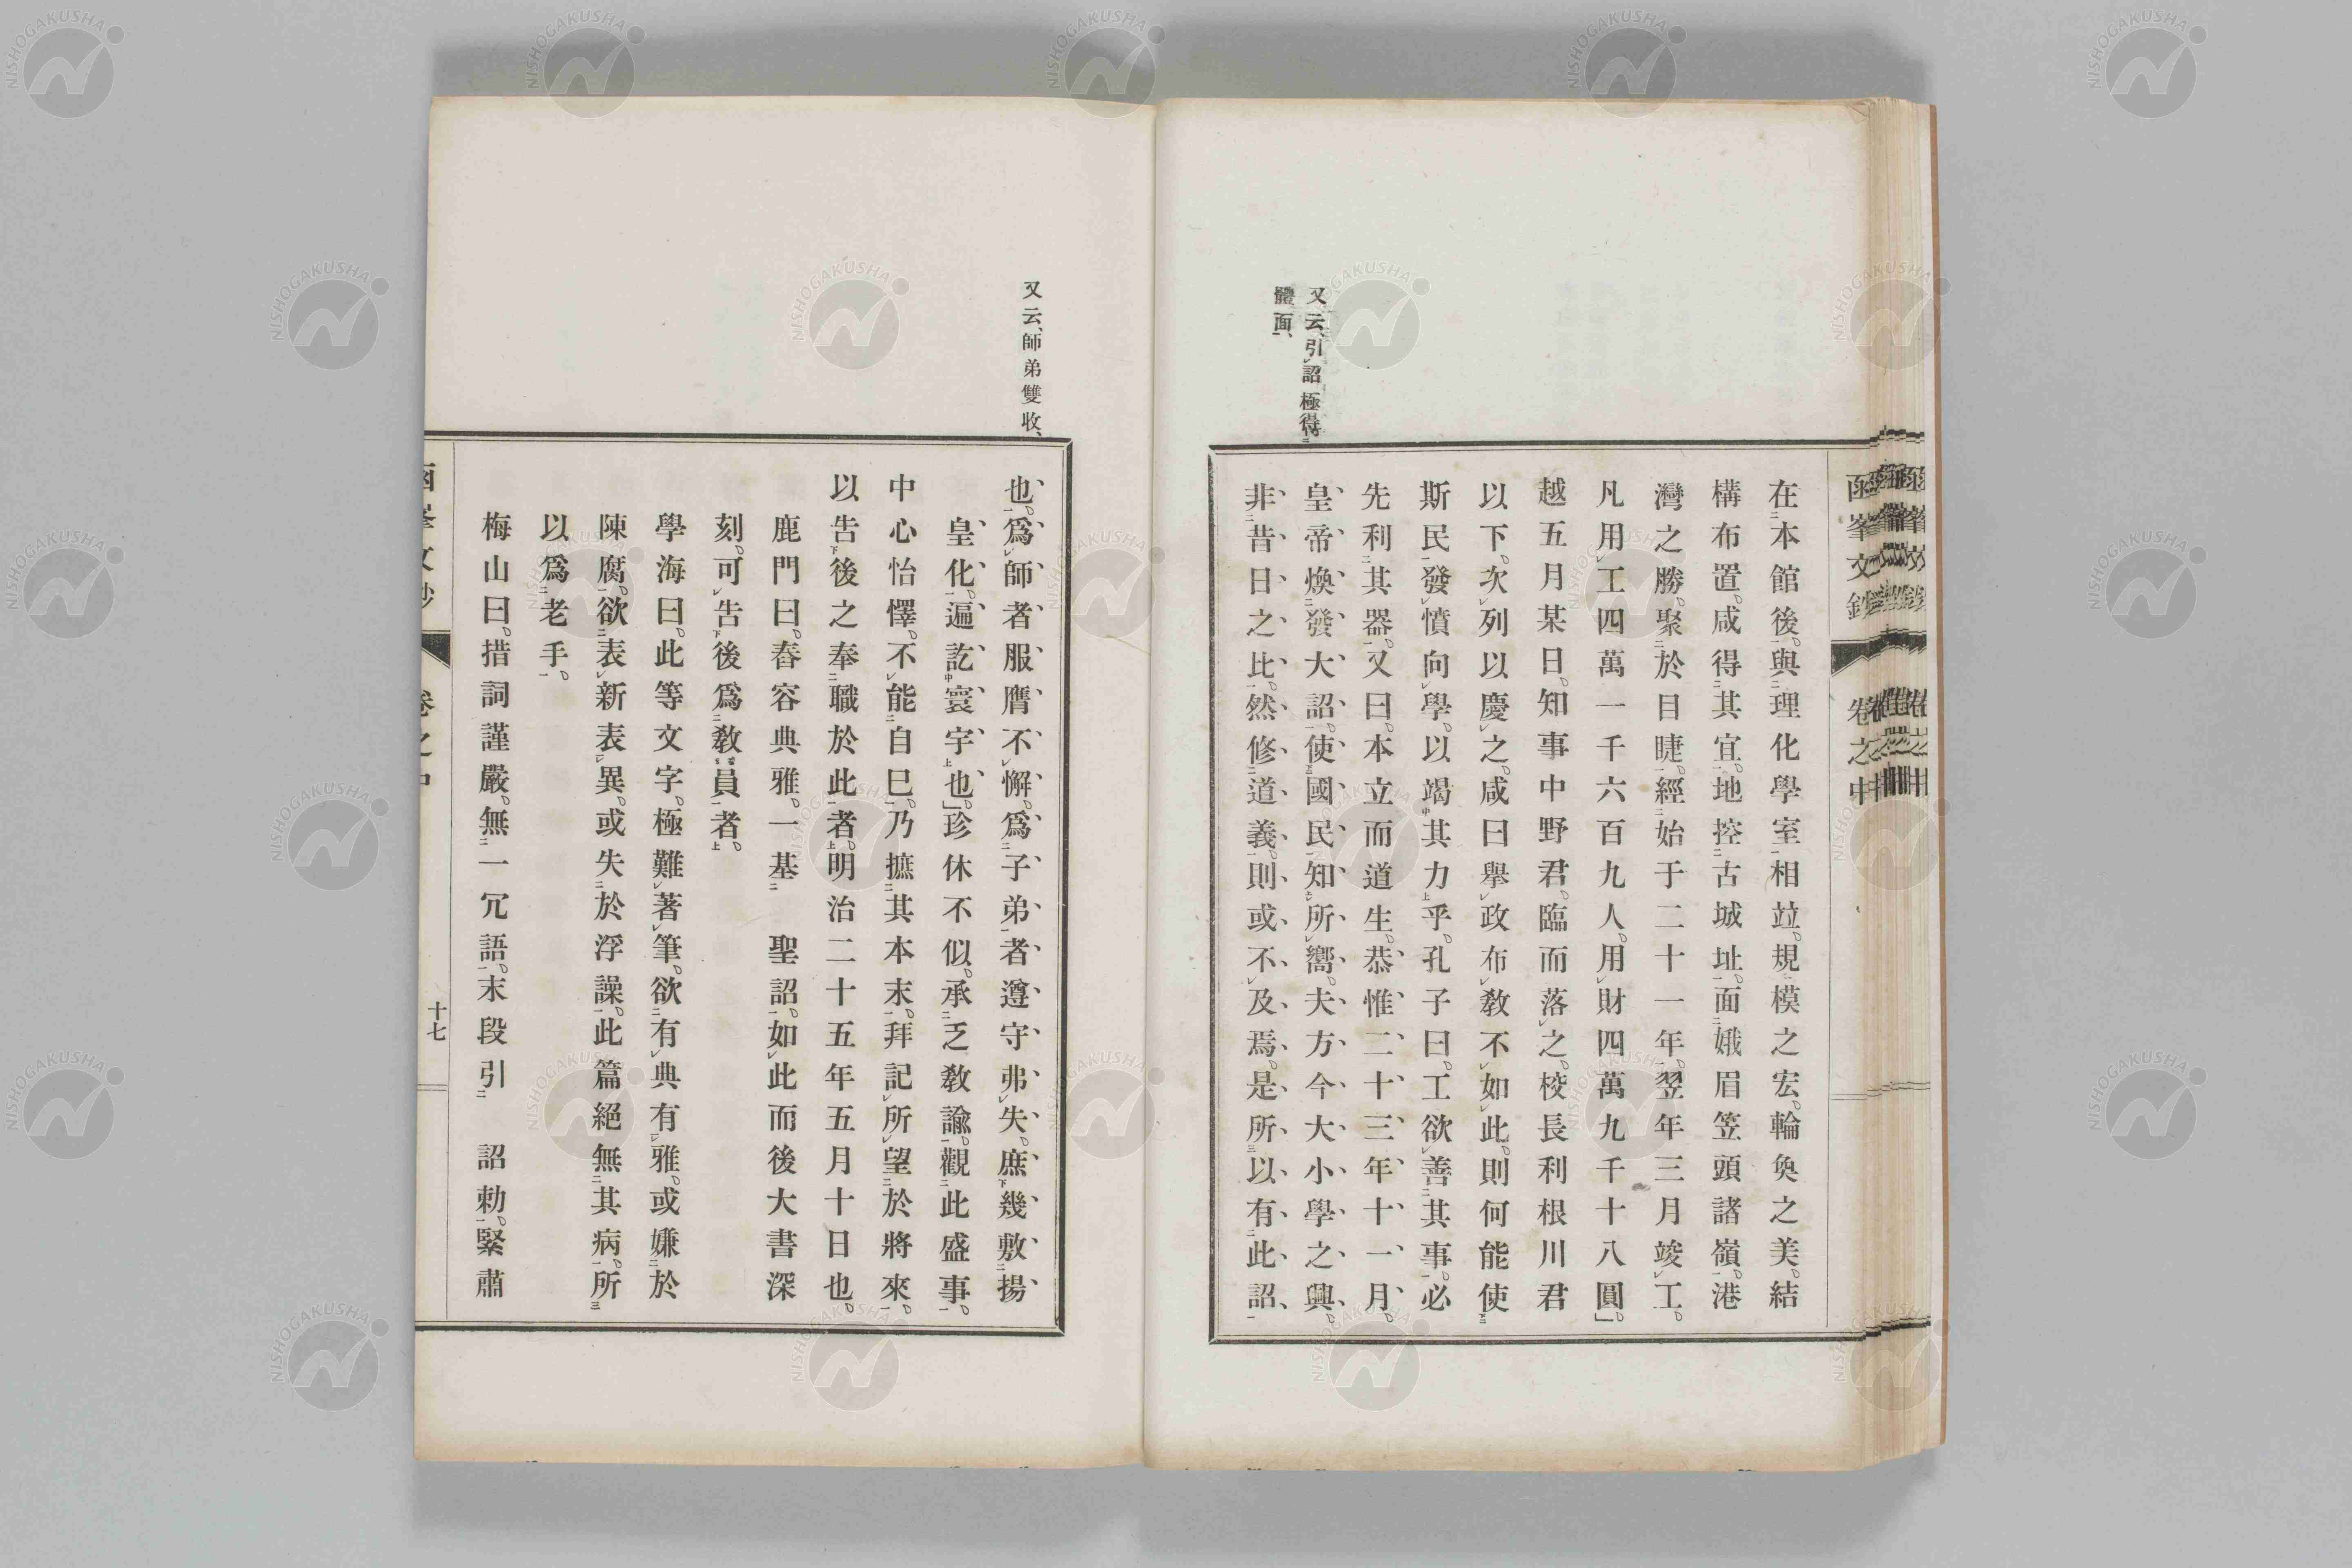 函峯文鈔 卷之中
又云、引詔極得
體面、
在本館後。與理化學室相竝。規模之宏。輪奐之美。結
構布置。咸得其宜。地控古城址。面娥眉笠頭諸嶺。港
灣之勝。聚於目睫。經始于二十一年。翌年三月竣工。
凡用工四萬一千六百九人。用財四萬九千十八圓。」
越五月某日。知事中野君。臨而落之。校長利根川君
以下。次列以慶之。咸曰擧政布敎不如此。則何能使
斯民發憤向學。以竭其力乎。孔子曰。工欲善其事。必
先利其器。又曰。本立而道生。恭惟二十三年十一月。
皇帝煥發大詔。使國民知所嚮。夫方今大小學之興。
非昔日之比。然修道義。則或不及焉。是所以有此詔
又云、師弟雙收、
也。爲師者服膺不懈。爲子弟者遵守弗失。庶幾敷揚
皇化。遍訖寰宇也。」珍休不似。承乏敎諭。觀此盛事。
中心怡懌。不能自已。乃摭其本末。拜記所望於將來。
以告後之奉職於此者。明治二十五年五月十日也。
鹿門曰。春容典雅。一基 聖詔。如此而後大書深
刻。可告後爲敎員者。
學海曰。此等文字。極難著筆。欲有典有雅。或嫌於
陳腐。欲表新表異。或失於浮譟。此篇絕無其病。所
以爲老手。
梅山曰。措詞謹嚴。無一冗語。末段引 詔勅。緊肅
函峯文鈔 卷之中 十七